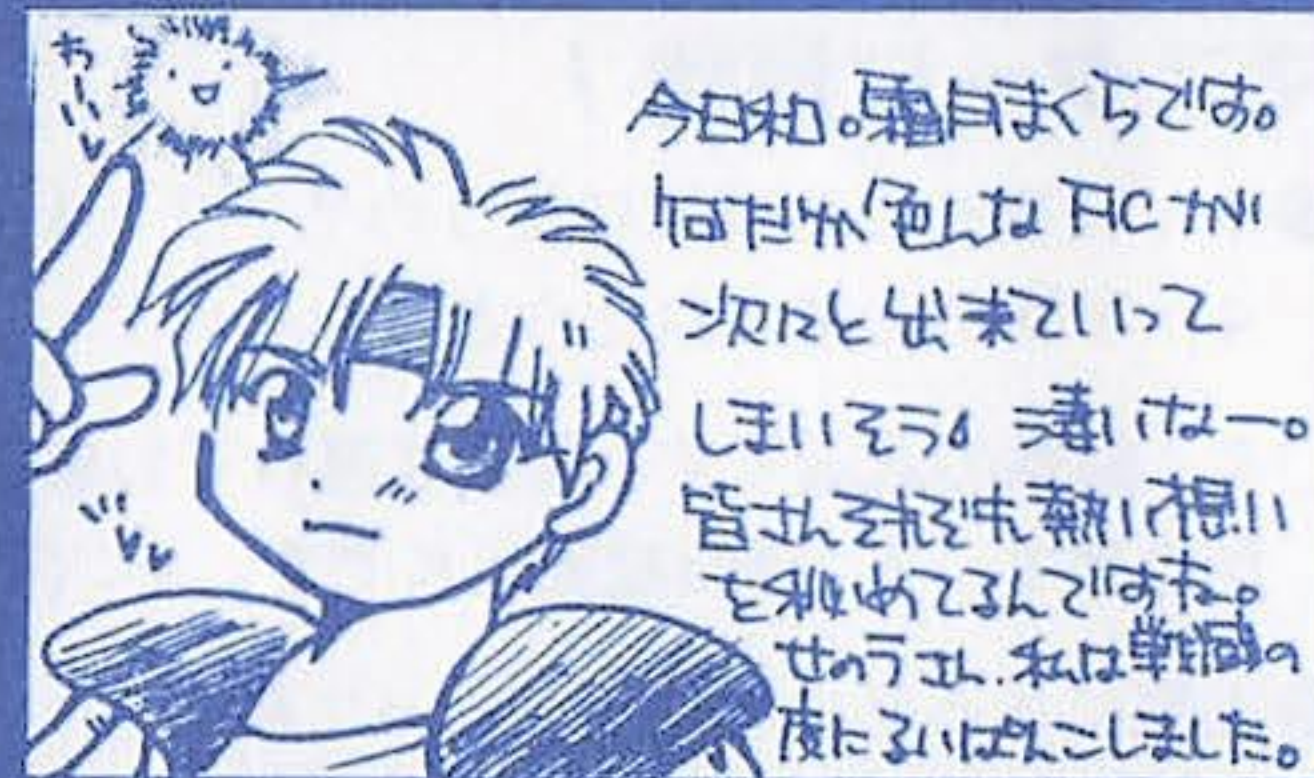 わーい
今日和。霜月まくらです。
何だか色んな FICが
次々と出来ていって
しまいそう。凄いなー。
皆さんそれぞれ熱い想い
を秘めてるんですね。
せのうさん、私は戦闘の
度に
しました。